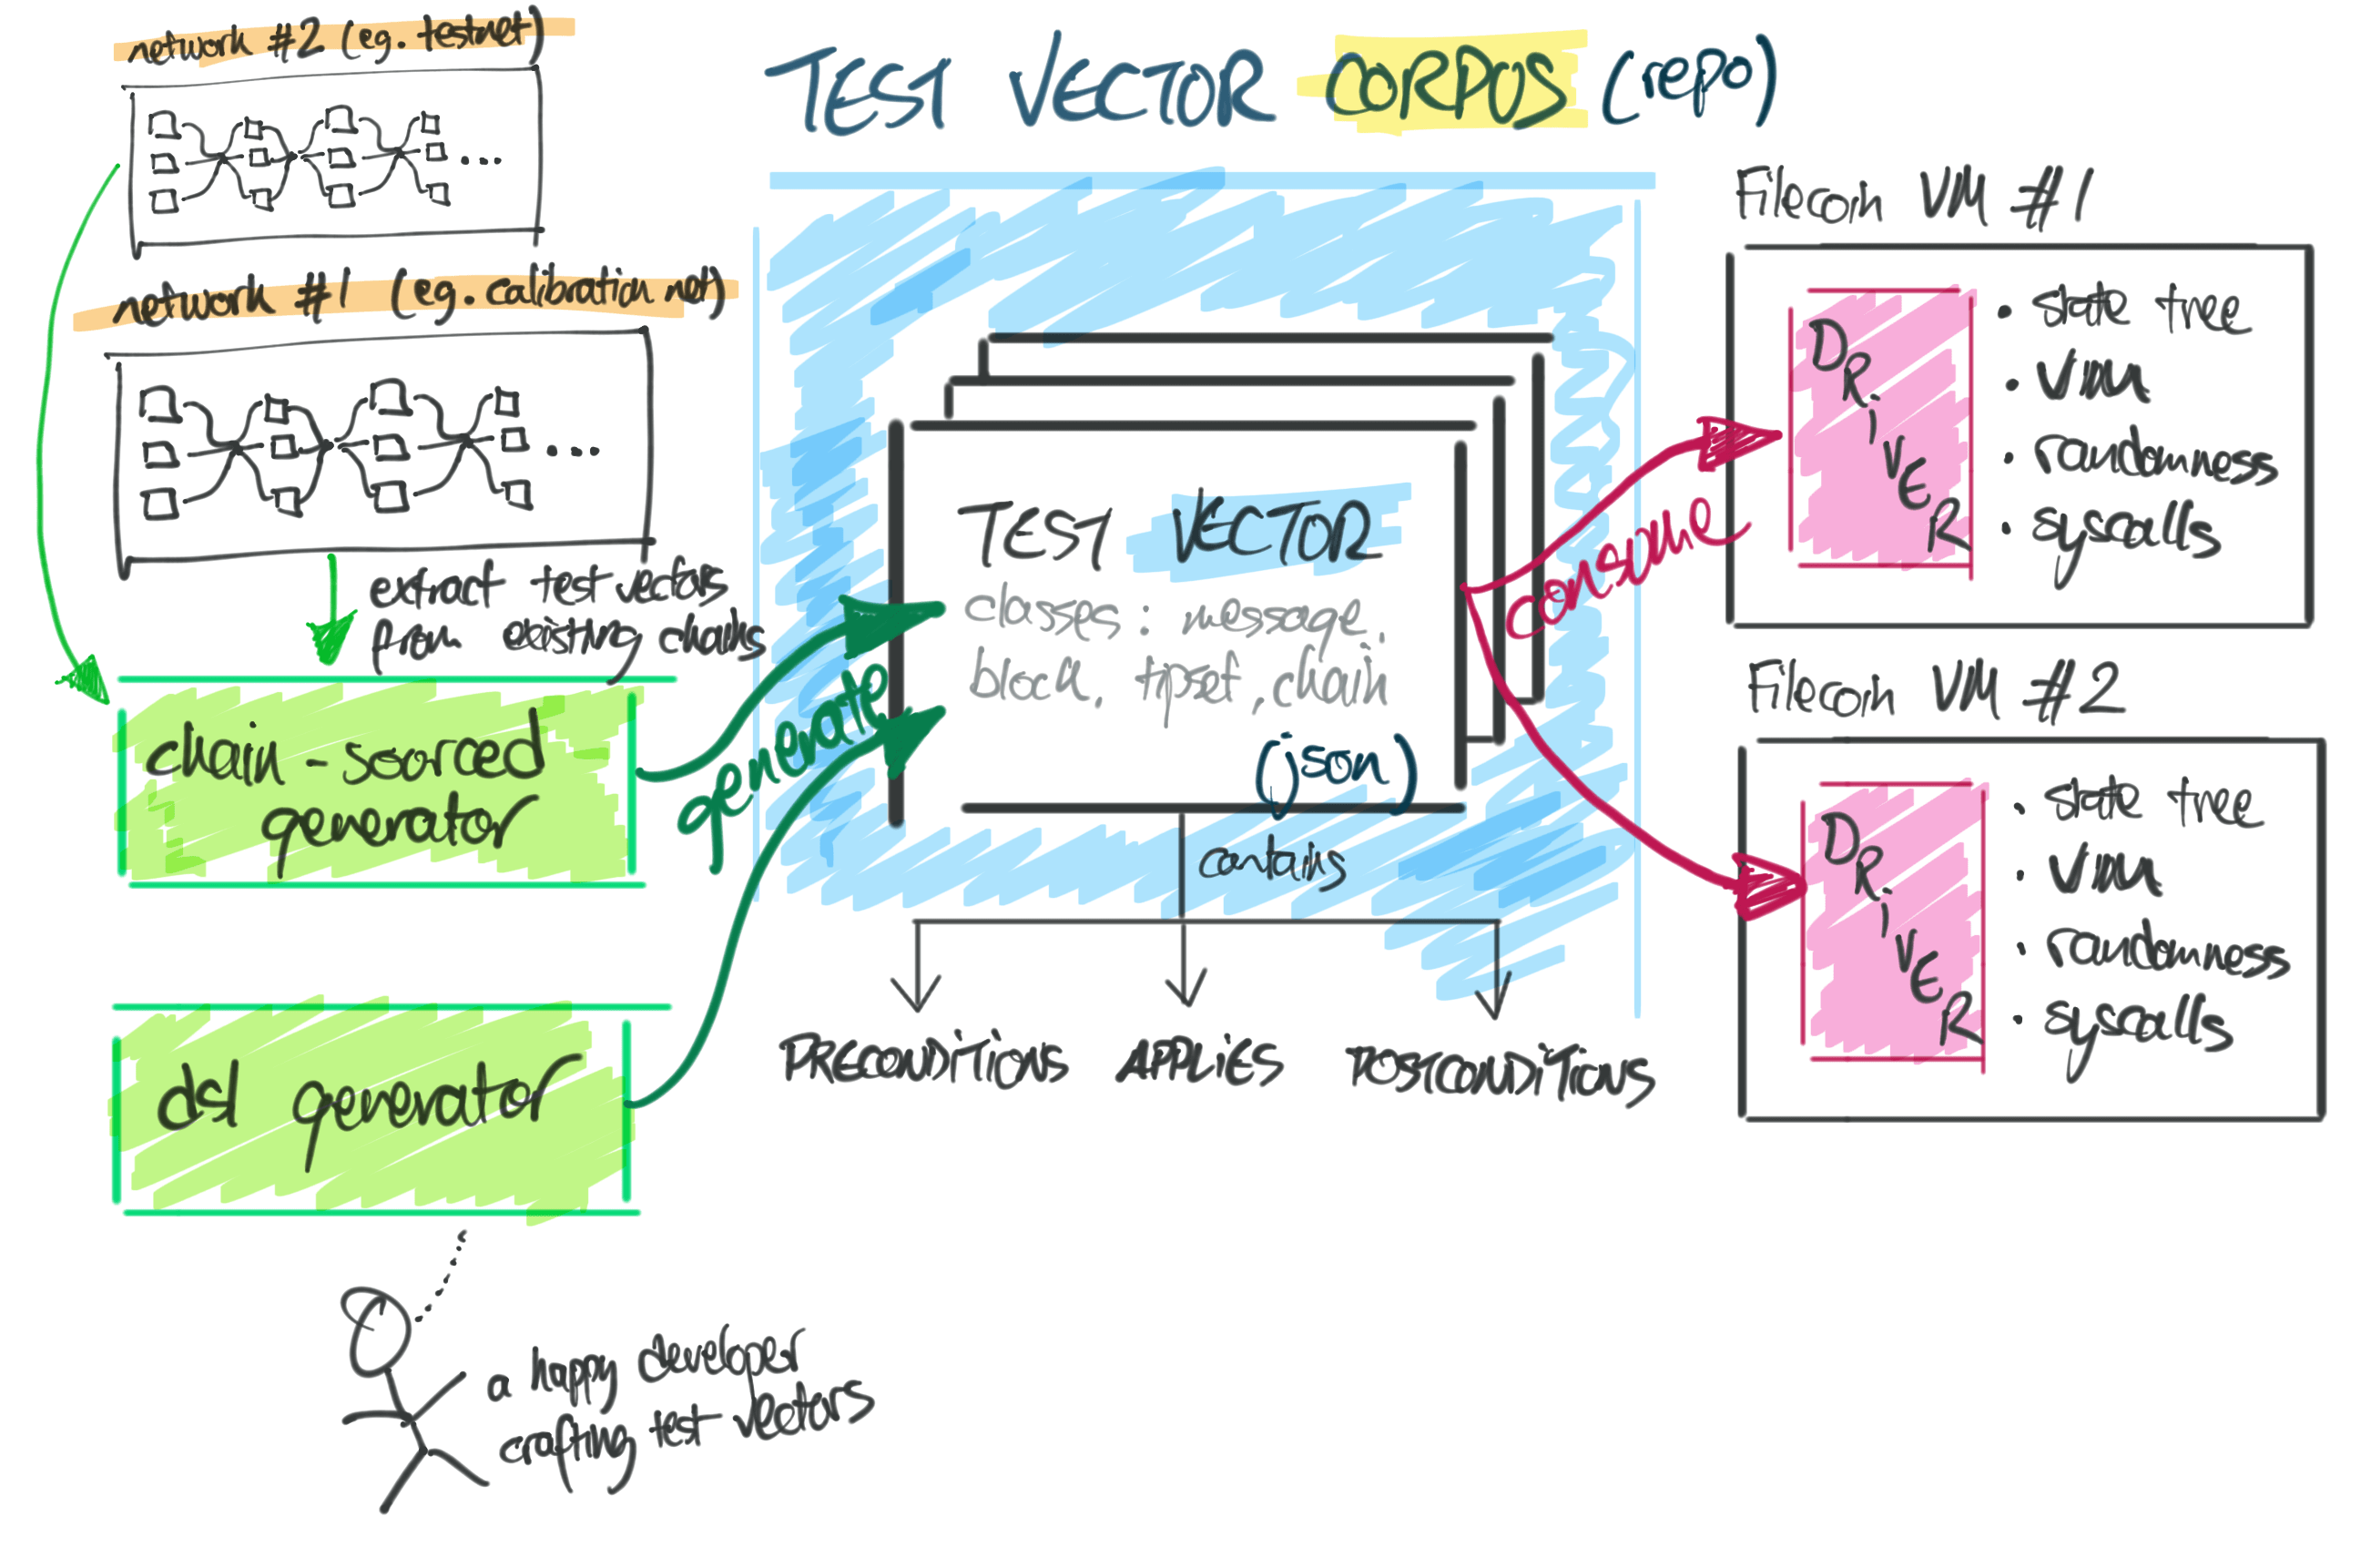 network #2 (eg. testnet)
network #1 (eg. calibration net)
extract test vectors
from existing chains
chain-sourced
generator
dsl generator
a happy developer
crafting test vectors
generate
TEST VECTOR CORPUS (repo)
TEST VECTOR
classes: message,
block, tipset, chain
(json)
contains
PRECONDITIONS
APPLIES
POSTCONDITIONS
consume
Filecoin VM #1
DRiVER
• state tree
• VM
• randomness
• syscalls
Filecoin VM #2
DRiVER
• state tree
• VM
• randomness
• syscalls